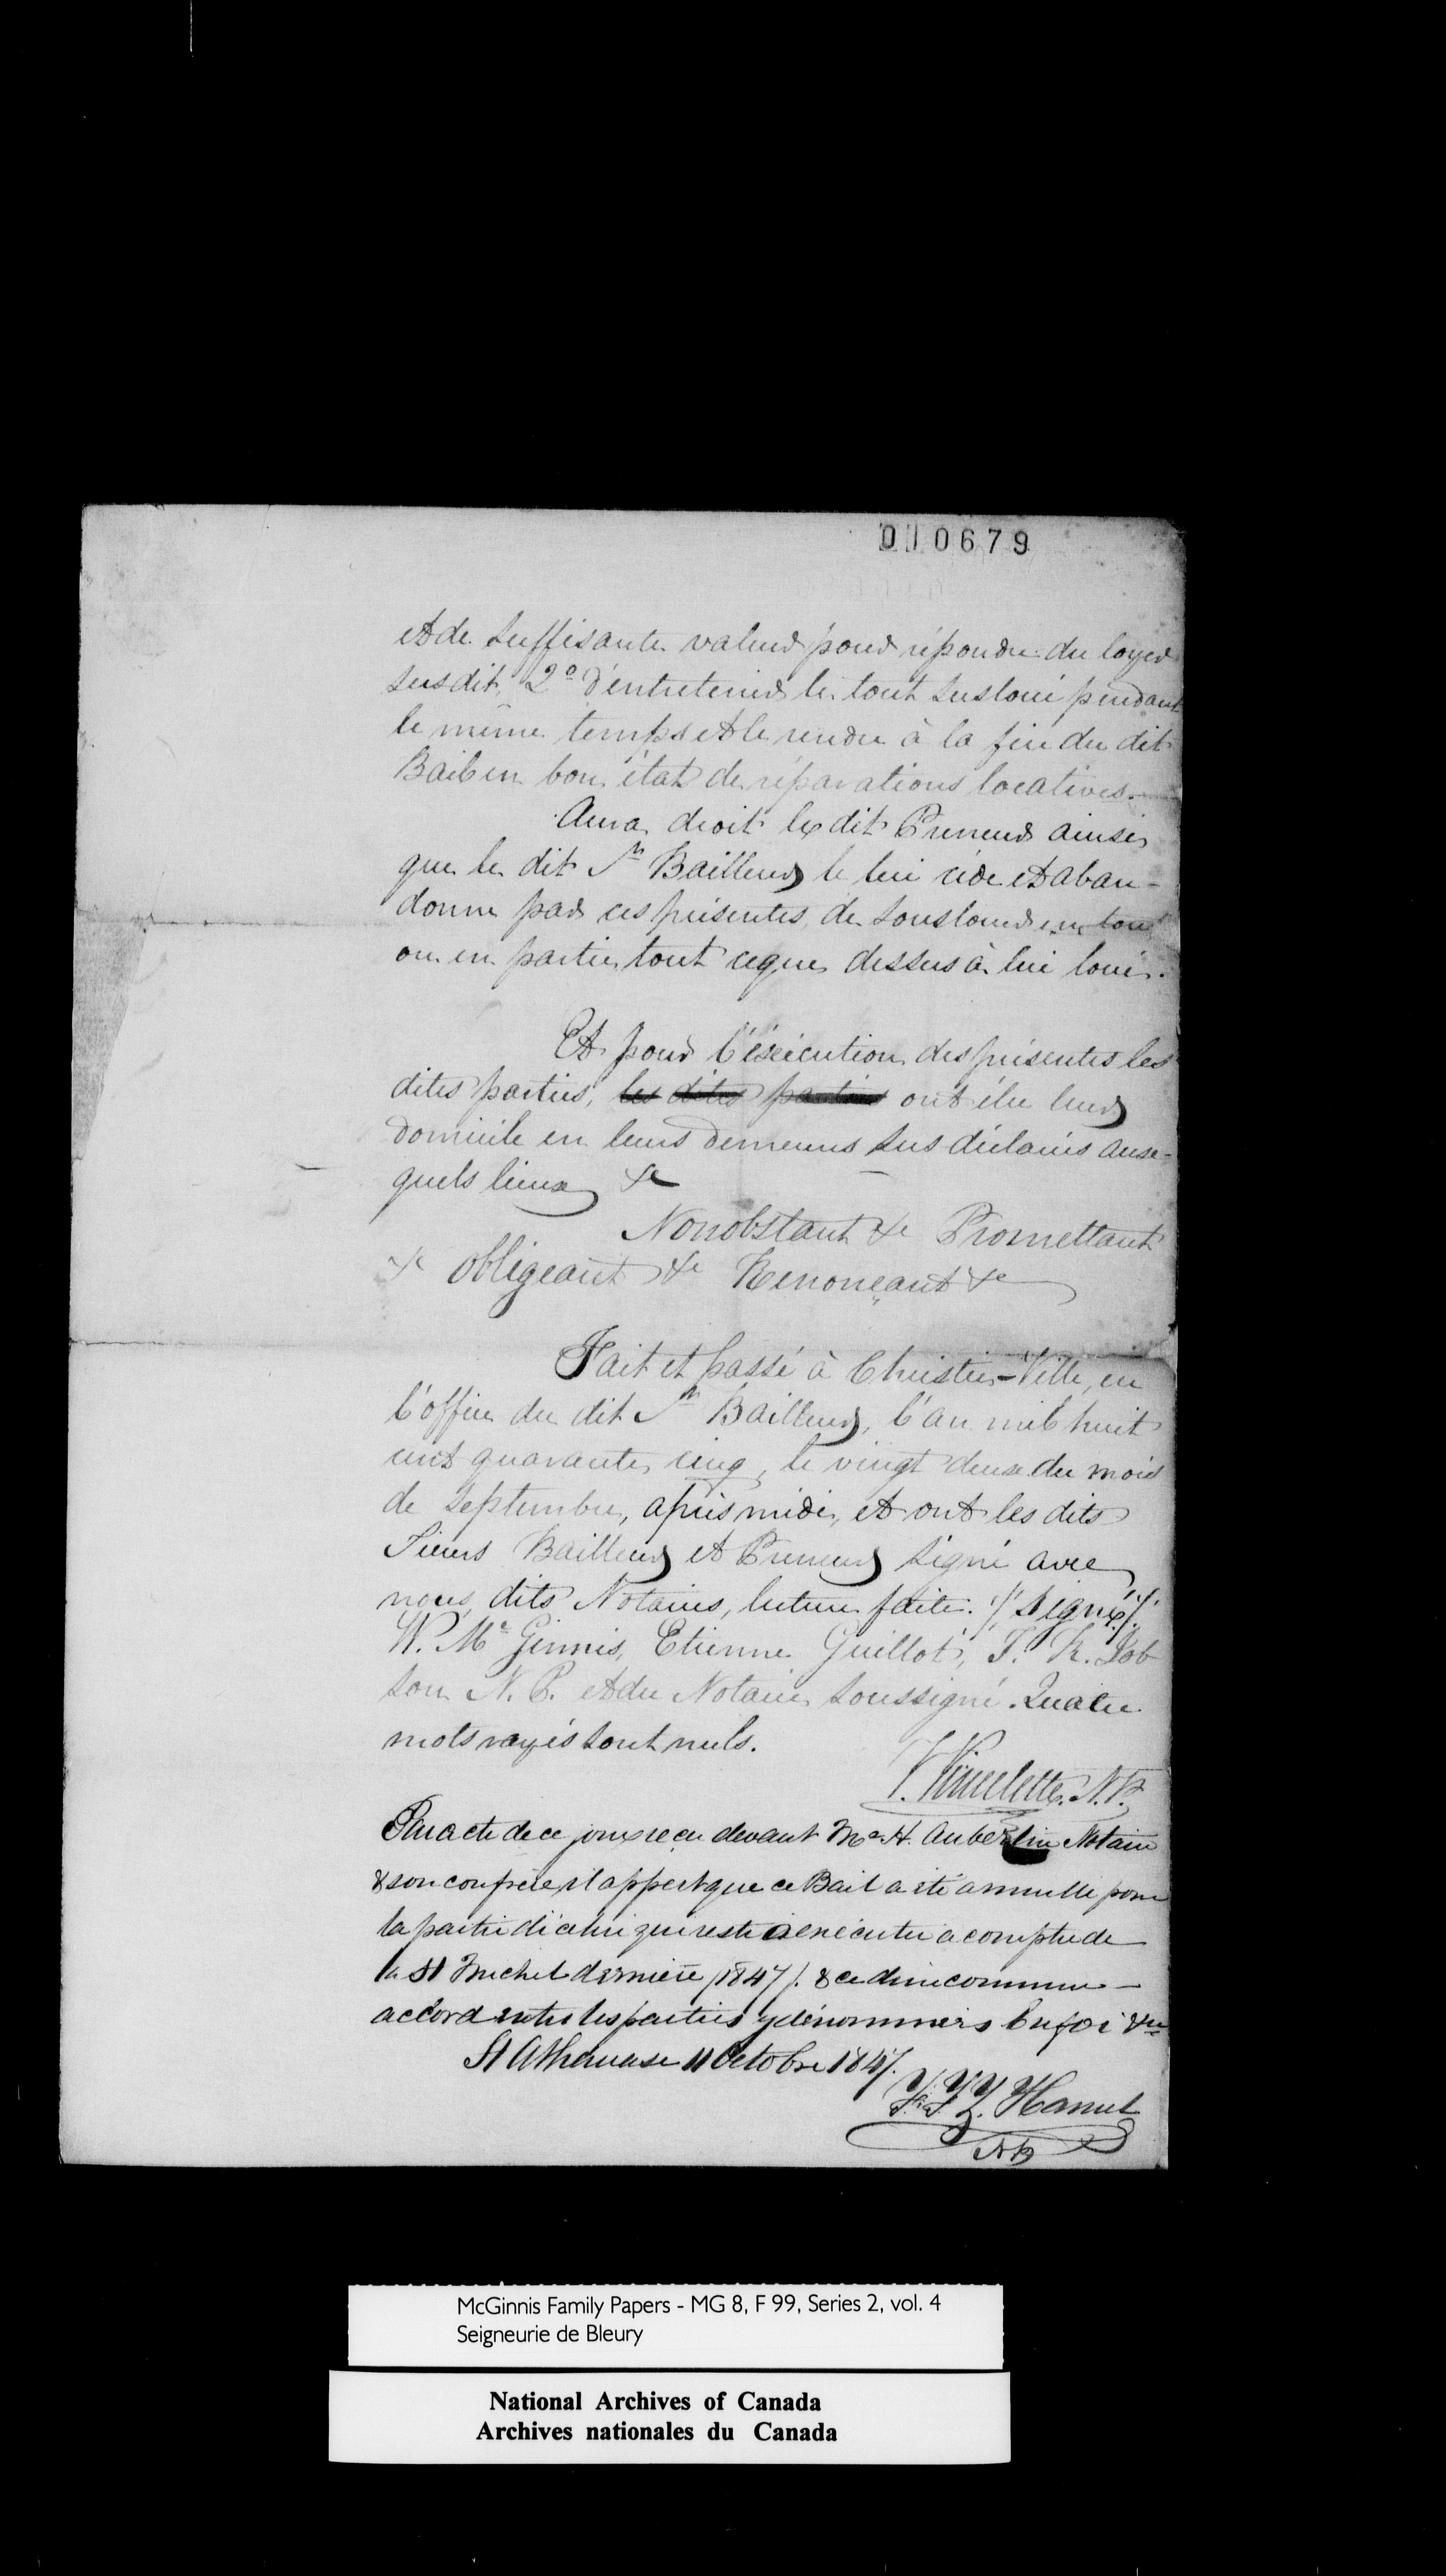 010679
et de suffisante valeur pour répondre du loyer
susdit, 2º D'entretenir le tout susloué pendant
le même temps et le rendre à la fin du dit
Bail en bon état de réparations locatives.
Aura droit le dit Preneur ainsi
que le dit Sr. Bailleur le lui cède et aban-
donne par ces présentes, de souslouer en tout
ou en partie tout ceque dessus à lui loué.
Et pour l'éxécution des présentes les
dites parties, les dites parties ont élu leur
domicile en leurs demeures sus déclarées aux-
quels lieux &c
Nonobstant &c Promettant
&c obligeant &c Renonçant &c
Fait et passé à Christie-Ville, en
l'office du dit Sr. Bailleur, l'an mil huit
cent quarante cinq, le vingt deux du mois
de Septembre, après midi, et ont les dits
Sieurs Bailleur et Preneur signé avec
nous dits Notaires, lecture faite. /Signé/
W. Mc Ginnis, Etienne Guillot, T. R. Job
son N. P. et du Notaire soussigné. Quatre
mots rayés sont nuls.
V. Vincelette, N.P.
Par acte de ce jour reçu devant Me. H. Aubertin Notaire
& son confrère, il appert que ce Bail a été annullé pour
la partie d'icelui qui reste à exécuter à compter de
la St Michel dernière /1847/. & ce d'une commune
accord entre les parties y dénommées En foi &c
St Athanase 11 Octobre 1847.
Z. Hamel
NP
McGinnis Family Papers - MG 8, F 99, Series 2, vol. 4
Seigneurie de Bleury
National Archives of Canada
Archives nationales du Canada